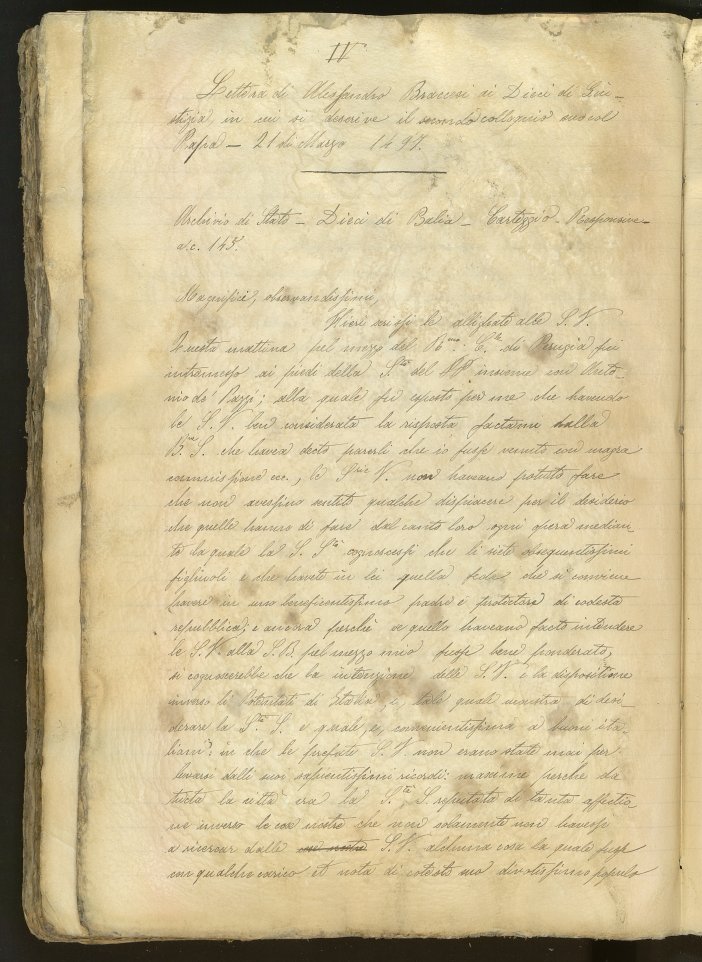 IV
Lettera di Alessandro Braccesi ai Dieci di Giu-
stizia, in cui si descrive il secondo colloquio suo col
Papa — 21 di Marzo 1497.
Archivio di Stato — Dieci di Balia — Carteggio — Responsive —
a. c. 145.
Magnifici, observandissimi,
Hieri scrissi le alligate alle S. V.
Questa mattina pel mezo del R.mo C.le di Perugia fui
intromesso ai piedi della S.tà del N. insieme con Anto-
nio de Pazzi; alla quale fu exposto per me che havendo
le S. V. ben considerata la risposta factami dalla
B.ne S. che havea decto parerli che io fussi venuto con magra
commissione ecc., le S.rie V. non haveano potuto fare
che non avessino sentito qualche dispiacere per il desiderio
che quelle hanno di fare dal canto loro ogni opera median-
te la quale la S. S.tà cognoscessi che li siete obsequentissimi
figliuoli e che havete in lei quella fede che si conviene
havere in uno beneficentissimo padre e protectore di codesta
repubblica; e ancora perchè se quello haveano facto intendere
le S. V. alla S. B. pel mezzo mio fussi bene ponderato,
si cognoscerebbe che la intenzione delle S. V. e la dispositione
inverso li Potentati di Italia, è, tale quale mostra di desi-
derare la S.tà S. e quale, è, convenientissima a buoni ita-
liani: in che le prefate S. V. non erano state mai per
levarsi dalli suoi sapientissimi ricordi: maxime perche da
tucta la città era la S.tà S. reputata di tanta affectio-
ne inverso le cose nostre che non solamente non havessi
a ricercar dalle S. V. alchuna cosa la quale fussi
con qualche carico et nota di cotesto suo divotissimo populo